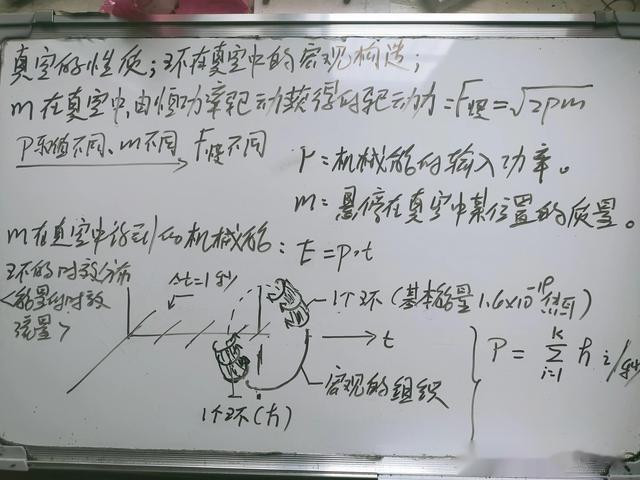 真空的性质；环在真空中的宏观构造；
m在真空中由恒功率驱动获得的驱动力=F惯=√2pm
P取值不同、m不同 F惯不同
P=机械能的输入功率。
m=悬停在真空中某位置的质量。
m在真空中得到的机械能：E=P·t
环的时效分布
<能量的时效流量>
Δt=1秒
1个环(基本能量1.6×10⁻¹⁹焦耳)
t
宏观的组织
1个环(ℏ)
P=∑ᵢ₌₁ᴷ ℏ i/秒